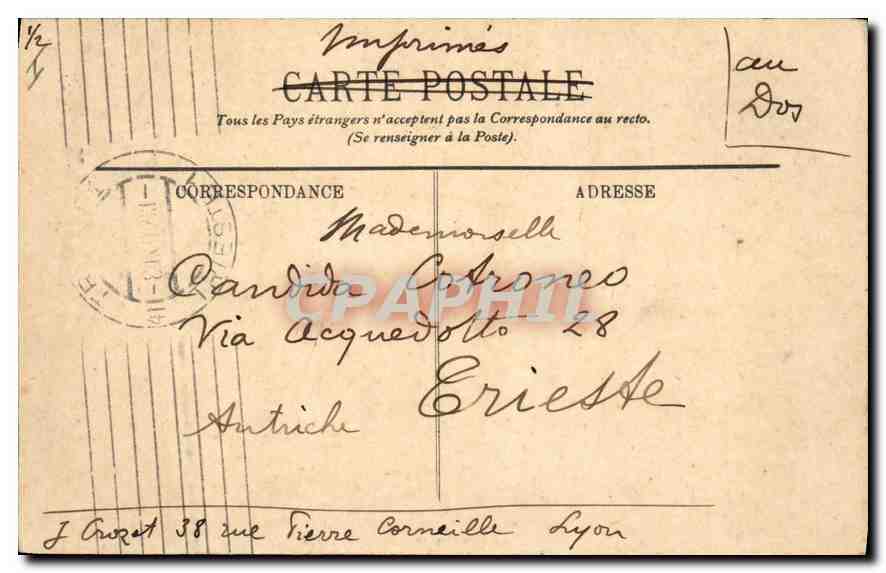 1/2
Imprimés
au
Dos
CARTE POSTALE
Tous les Pays étrangers n'acceptent pas la Correspondance au recto.
(Se renseigner à la Poste).
CORRESPONDANCE
ADRESSE
Mademoiselle
Candida Cotroneo
CPAPHIL
Via Acquedotto 28
Trieste
Autriche
J Crozet 38 rue Pierre Corneille Lyon